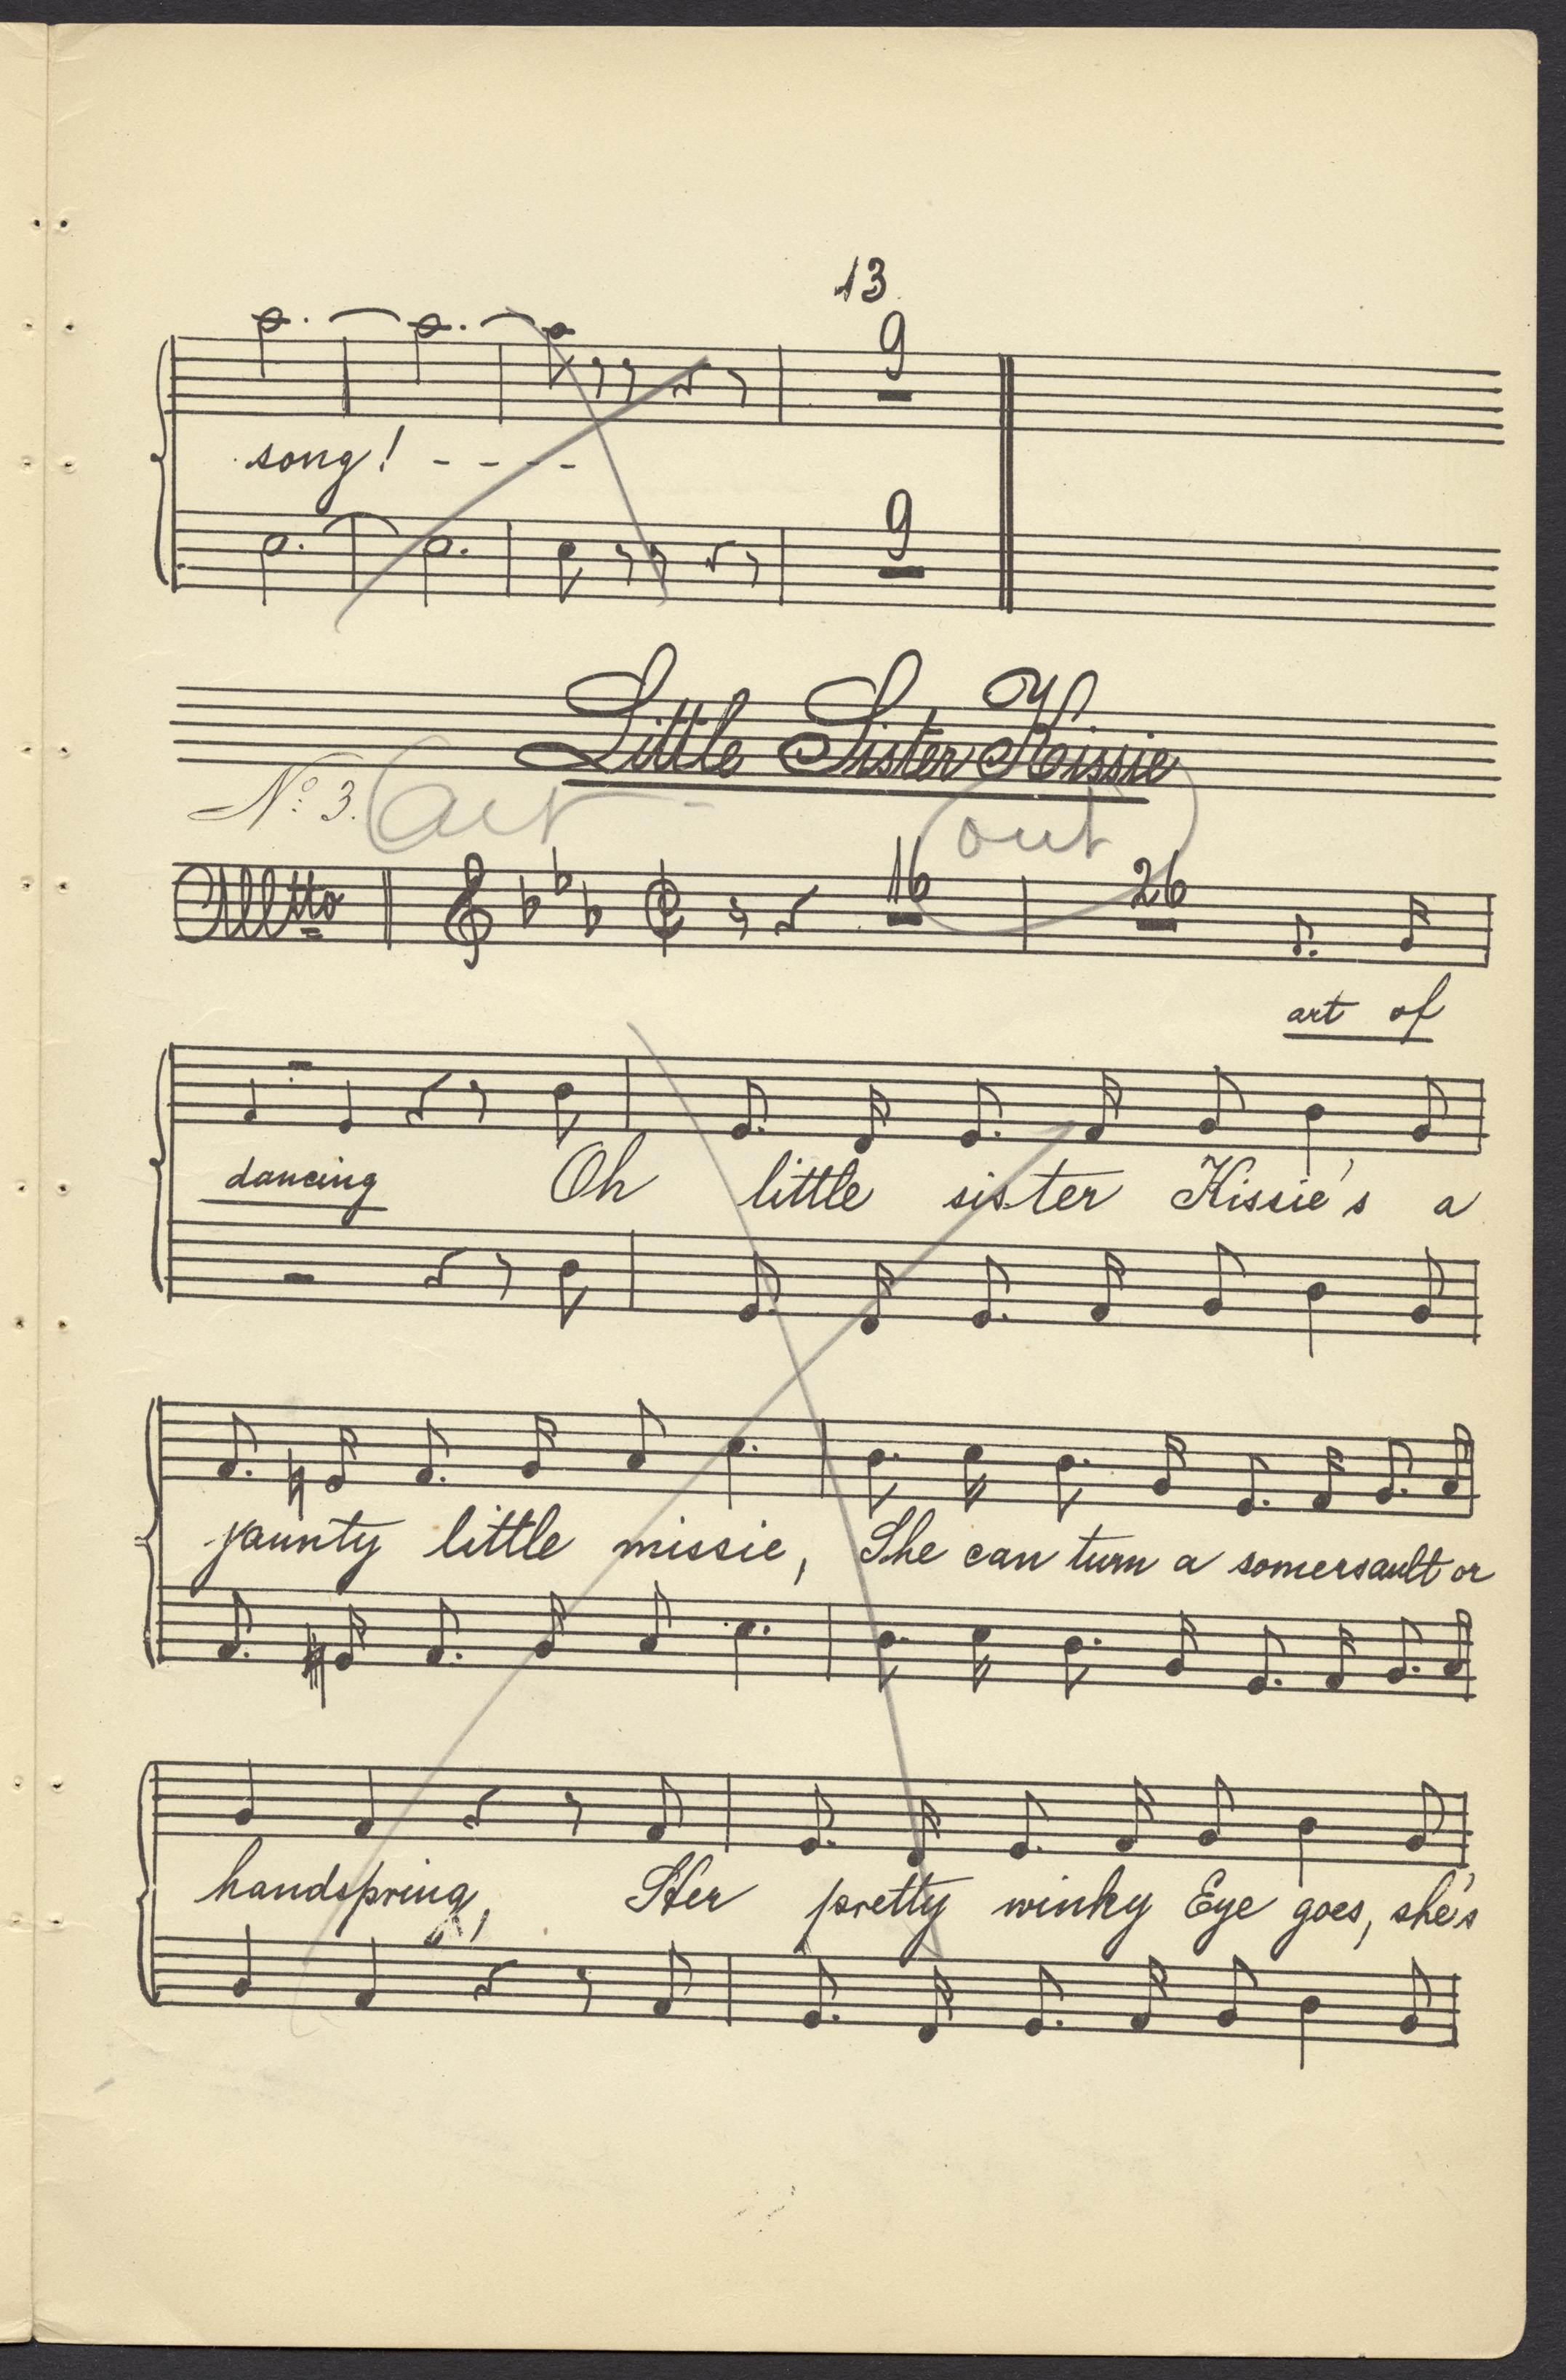 13
9
song! - - - -
9
Little Sister Kissie
No. 3.
out
Alltto
16
26
art of
dancing Oh little sister Kissie's a
jaunty little missie, She can turn a somersault or
handspring, Her pretty winky Eye goes, she's